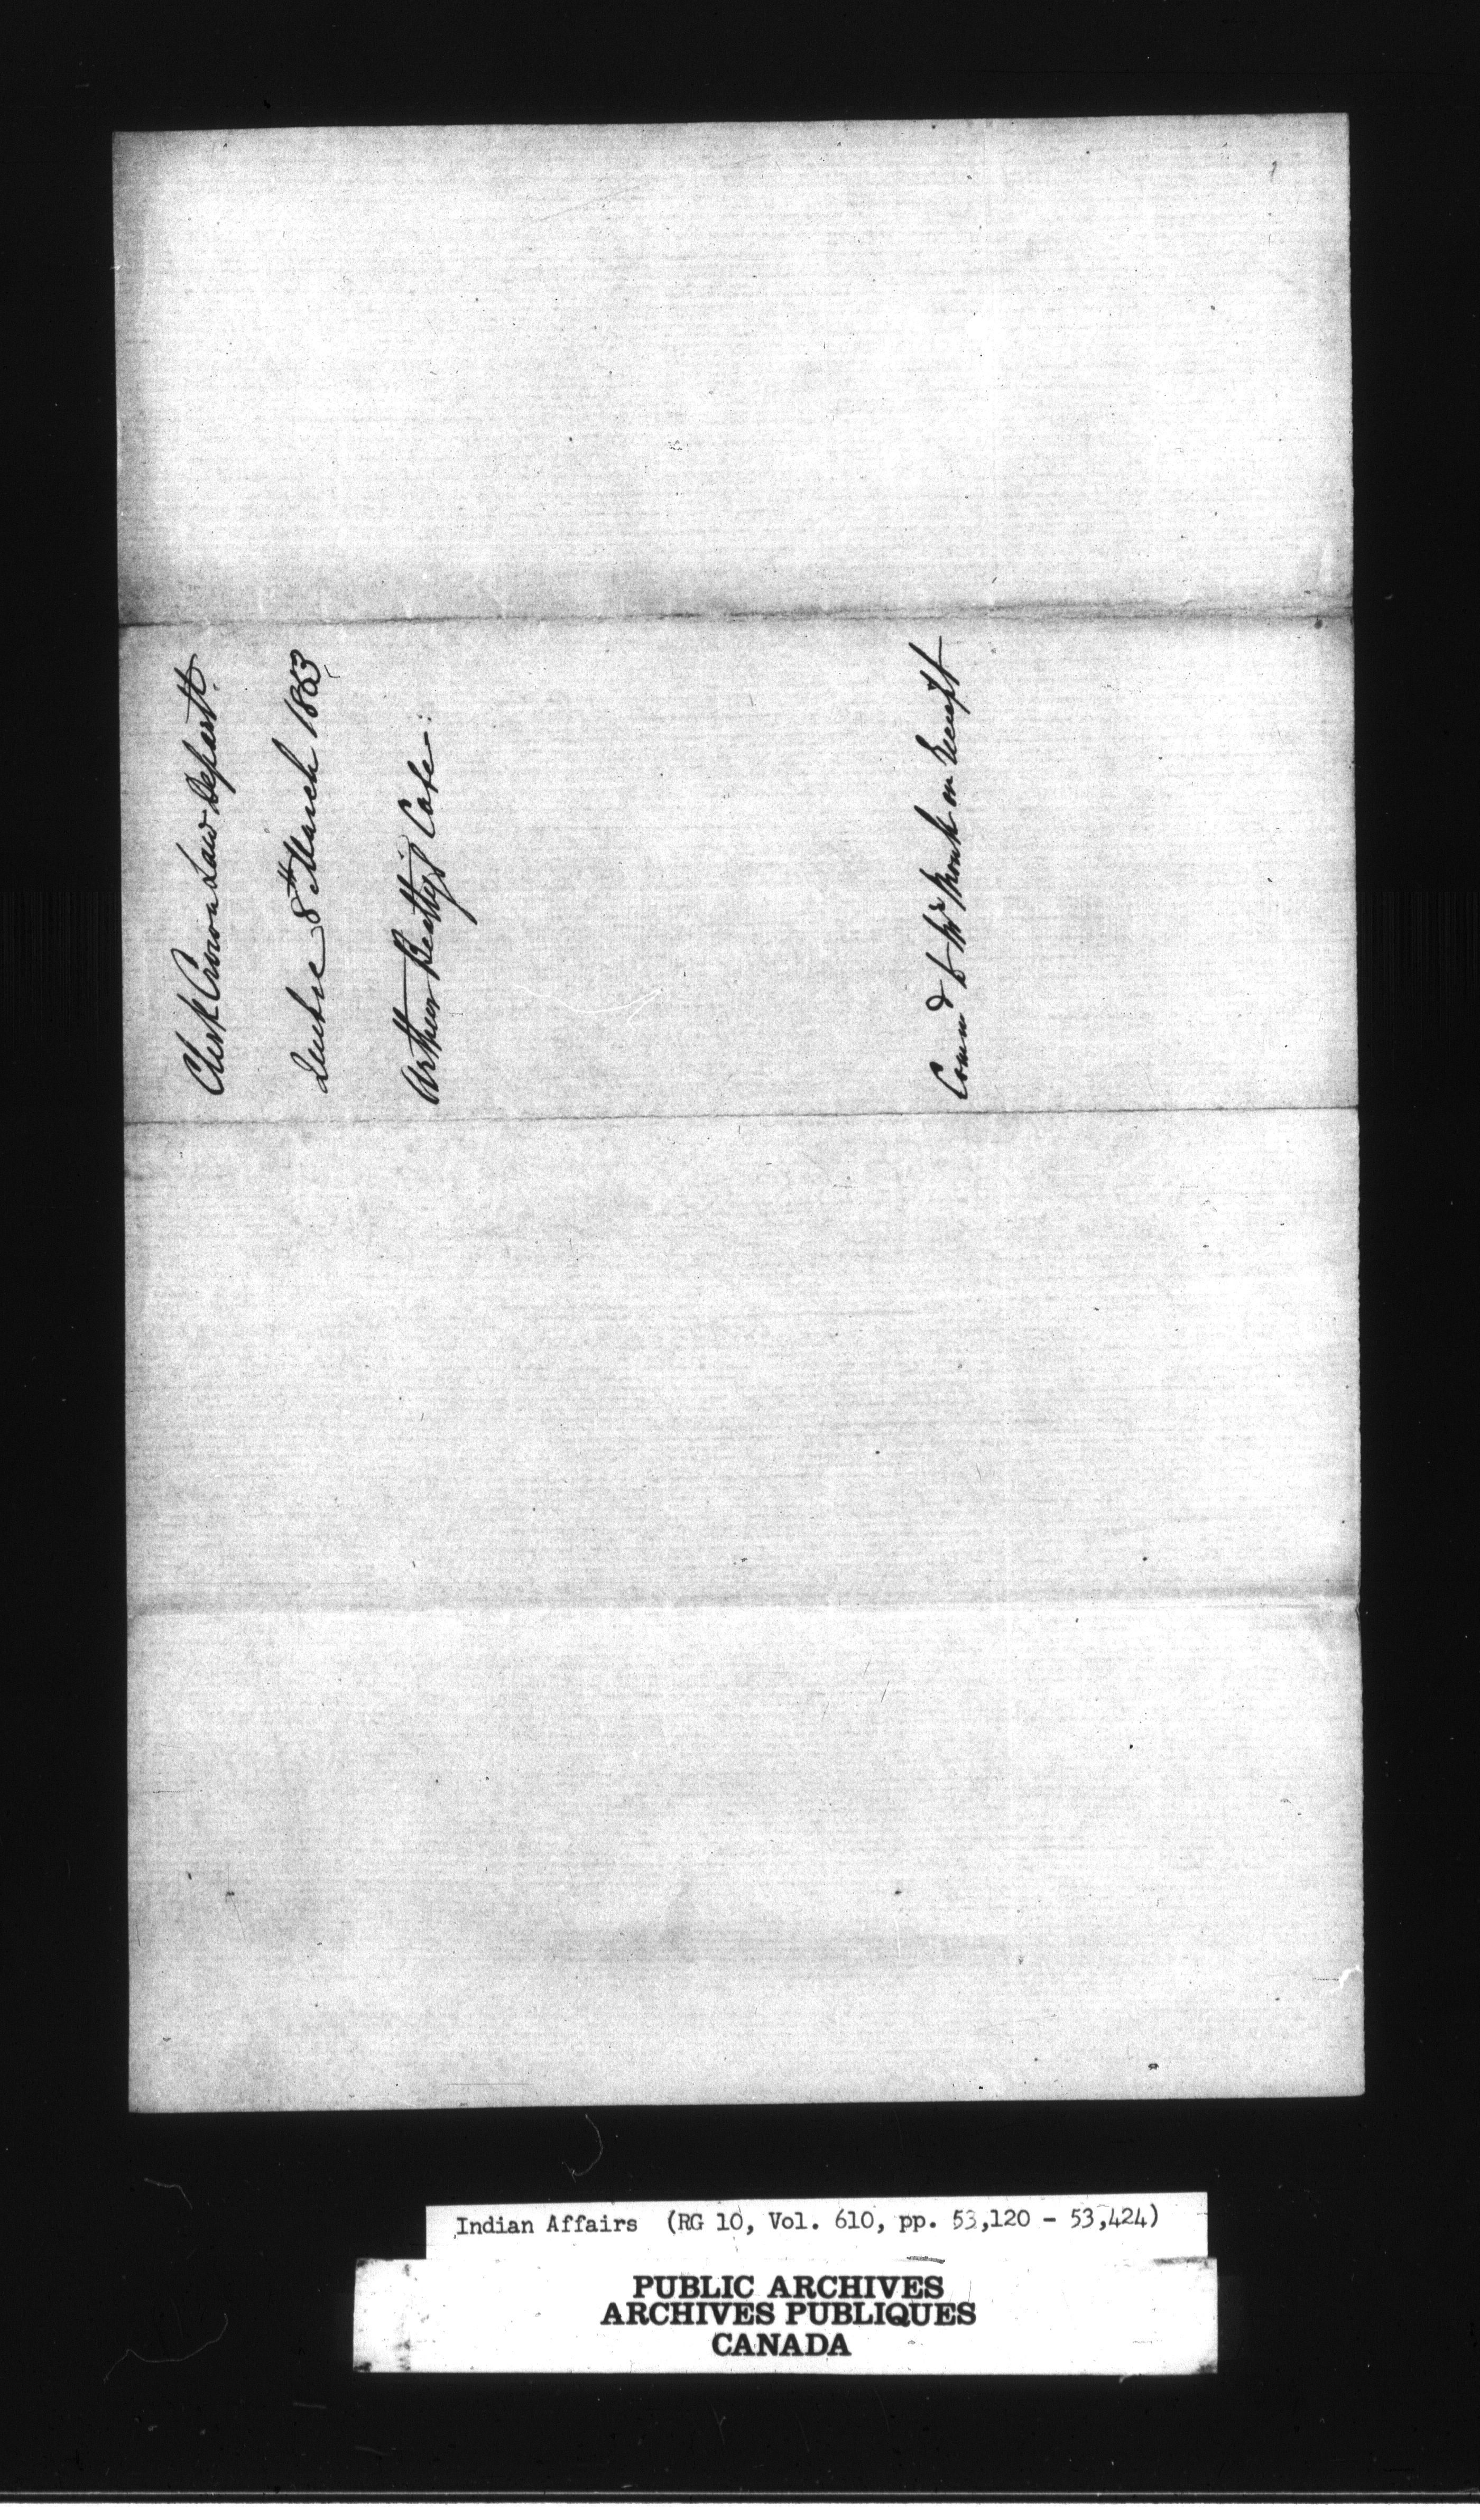 Clerk Crown Law Departt.
Quebec 8th March 1853
Arthur Beatty's Case:
Comm d to Mr Monk on Receipt
Indian Affairs (RG 10, Vol. 610, pp. 53,120 - 53,424)
PUBLIC ARCHIVES
ARCHIVES PUBLIQUES
CANADA